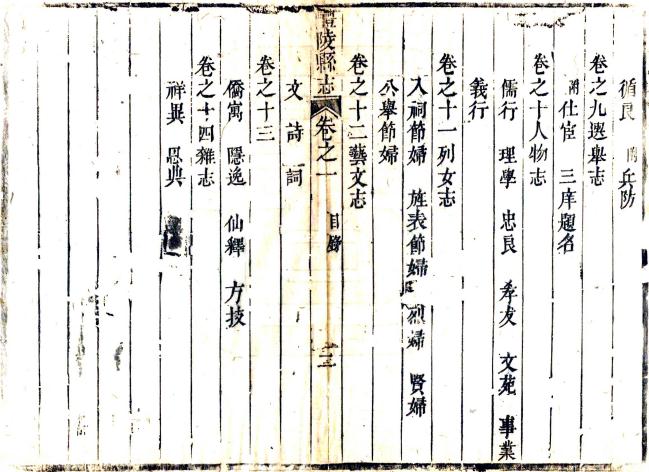 循良 附兵防
卷之九選舉志
附仕宦 三庠題名
卷之十人物志
儒行 理學 忠良 孝友 文苑 事業
義行
卷之十一列女志
入祠節婦 旌表節婦 烈婦 賢婦
公舉節婦
卷之十二藝文志
文 詩 詞
醴陵縣志 卷之一 目錄 三
卷之十三
僑寓 隱逸 仙釋 方技
卷之十四雜志
祥異 恩典